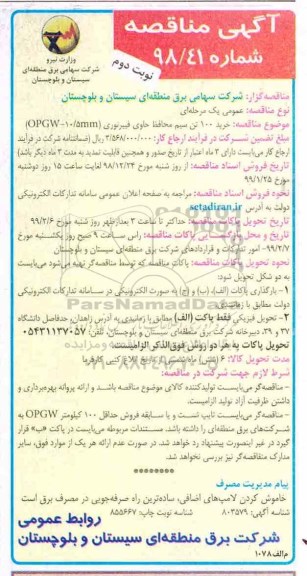 آگهی مناقصه
شماره ۹۸/۴۱
نوبت دوم
وزارت نیرو
شرکت سهامی برق منطقه‌ای
سیستان و بلوچستان
مناقصه‌گزار: شرکت سهامی برق منطقه‌ای سیستان و بلوچستان
نوع مناقصه: عمومی یک مرحله‌ای
موضوع مناقصه: خرید ۱۰۰ تن سیم محافظ حاوی فیبرنوری (OPGW-۱۰/۵mm)
مبلغ تضمین شرکت در فرآیند ارجاع کار: ۳/۵۶۸/۰۰۰/۰۰۰ ریال (ضمانتنامه شرکت در فرآیند
ارجاع کار می‌بایست دارای ۳ ماه اعتبار از تاریخ صدور و همچنین قابلیت تمدید به مدت ۳ ماه دیگر باشد)
تاریخ فروش اسناد مناقصه: از روز شنبه مورخ ۹۸/۱۲/۲۴ لغایت ساعت ۱۵ روز دوشنبه
مورخ ۹۹/۱/۲۵
نحوه فروش اسناد مناقصه: مراجعه به صفحه اعلان عمومی سامانه تدارکات الکترونیکی
دولت به آدرس setadiran.ir
تاریخ تحویل پاکات مناقصه: حداکثر تا ساعت ۳ بعدازظهر روز شنبه مورخ ۹۹/۲/۶
تاریخ و محل بازگشایی پاکات مناقصه: راس ساعت ۹ صبح روز یکشنبه مورخ
۹۹/۲/۷ - امور تدارکات و قراردادهای شرکت برق منطقه‌ای سیستان و بلوچستان
نحوه تحویل پاکات مناقصه: پاکات مناقصه که توسط مناقصه‌گر تهیه می‌شود می‌بایست
به دو شکل تحویل شود:
۱- بارگذاری پاکات (الف)، (ب) و (ج) به صورت الکترونیکی در سامانه تدارکات الکترونیکی
دولت مطابق با زمانبندی
۲- تحویل فیزیکی فقط پاکت (الف) مطابق با زمانبندی به آدرس زاهدان، حدفاصل دانشگاه
۳۷ و ۳۹، دبیرخانه شرکت برق منطقه‌ای سیستان و بلوچستان. تلفن: ۰۵۴۳۱۱۳۷۰۵۷
تحویل پاکات به هر دو روش فوق‌الذکر الزامیست.
مدت تحویل کالا: ۶ (شش) ماه شمسی از تاریخ ابلاغ کتبی کارفرما
شرط لازم جهت شرکت در مناقصه:
- مناقصه‌گر می‌بایست تولیدکننده کالای موضوع مناقصه باشد و ارائه پروانه بهره‌برداری و
داشتن ظرفیت آزاد تولید الزامیست.
- مناقصه‌گر می‌بایست تایپ تست و یا سابقه فروش حداقل ۱۰۰ کیلومتر OPGW به
شرکت‌های برق منطقه‌ای را داشته باشد. مستندات مربوطه می‌بایست در پاکت «ب» قرار
گیرد در غیر اینصورت پیشنهاد رد خواهد شد. در صورت عدم ارائه هر یک از موارد فوق، سایر
مدارک مناقصه‌گر نیز بررسی نخواهد شد.
********
پیام مدیریت مصرف
خاموش کردن لامپ‌های اضافی، ساده‌ترین راه صرفه‌جویی در مصرف برق است
شناسه آگهی: ۸۰۳۵۷۹ شناسه نوبت چاپ: ۸۵۵۶۶۷
روابط عمومی
شرکت برق منطقه‌ای سیستان و بلوچستان
م‌الف ۱۰۷۸